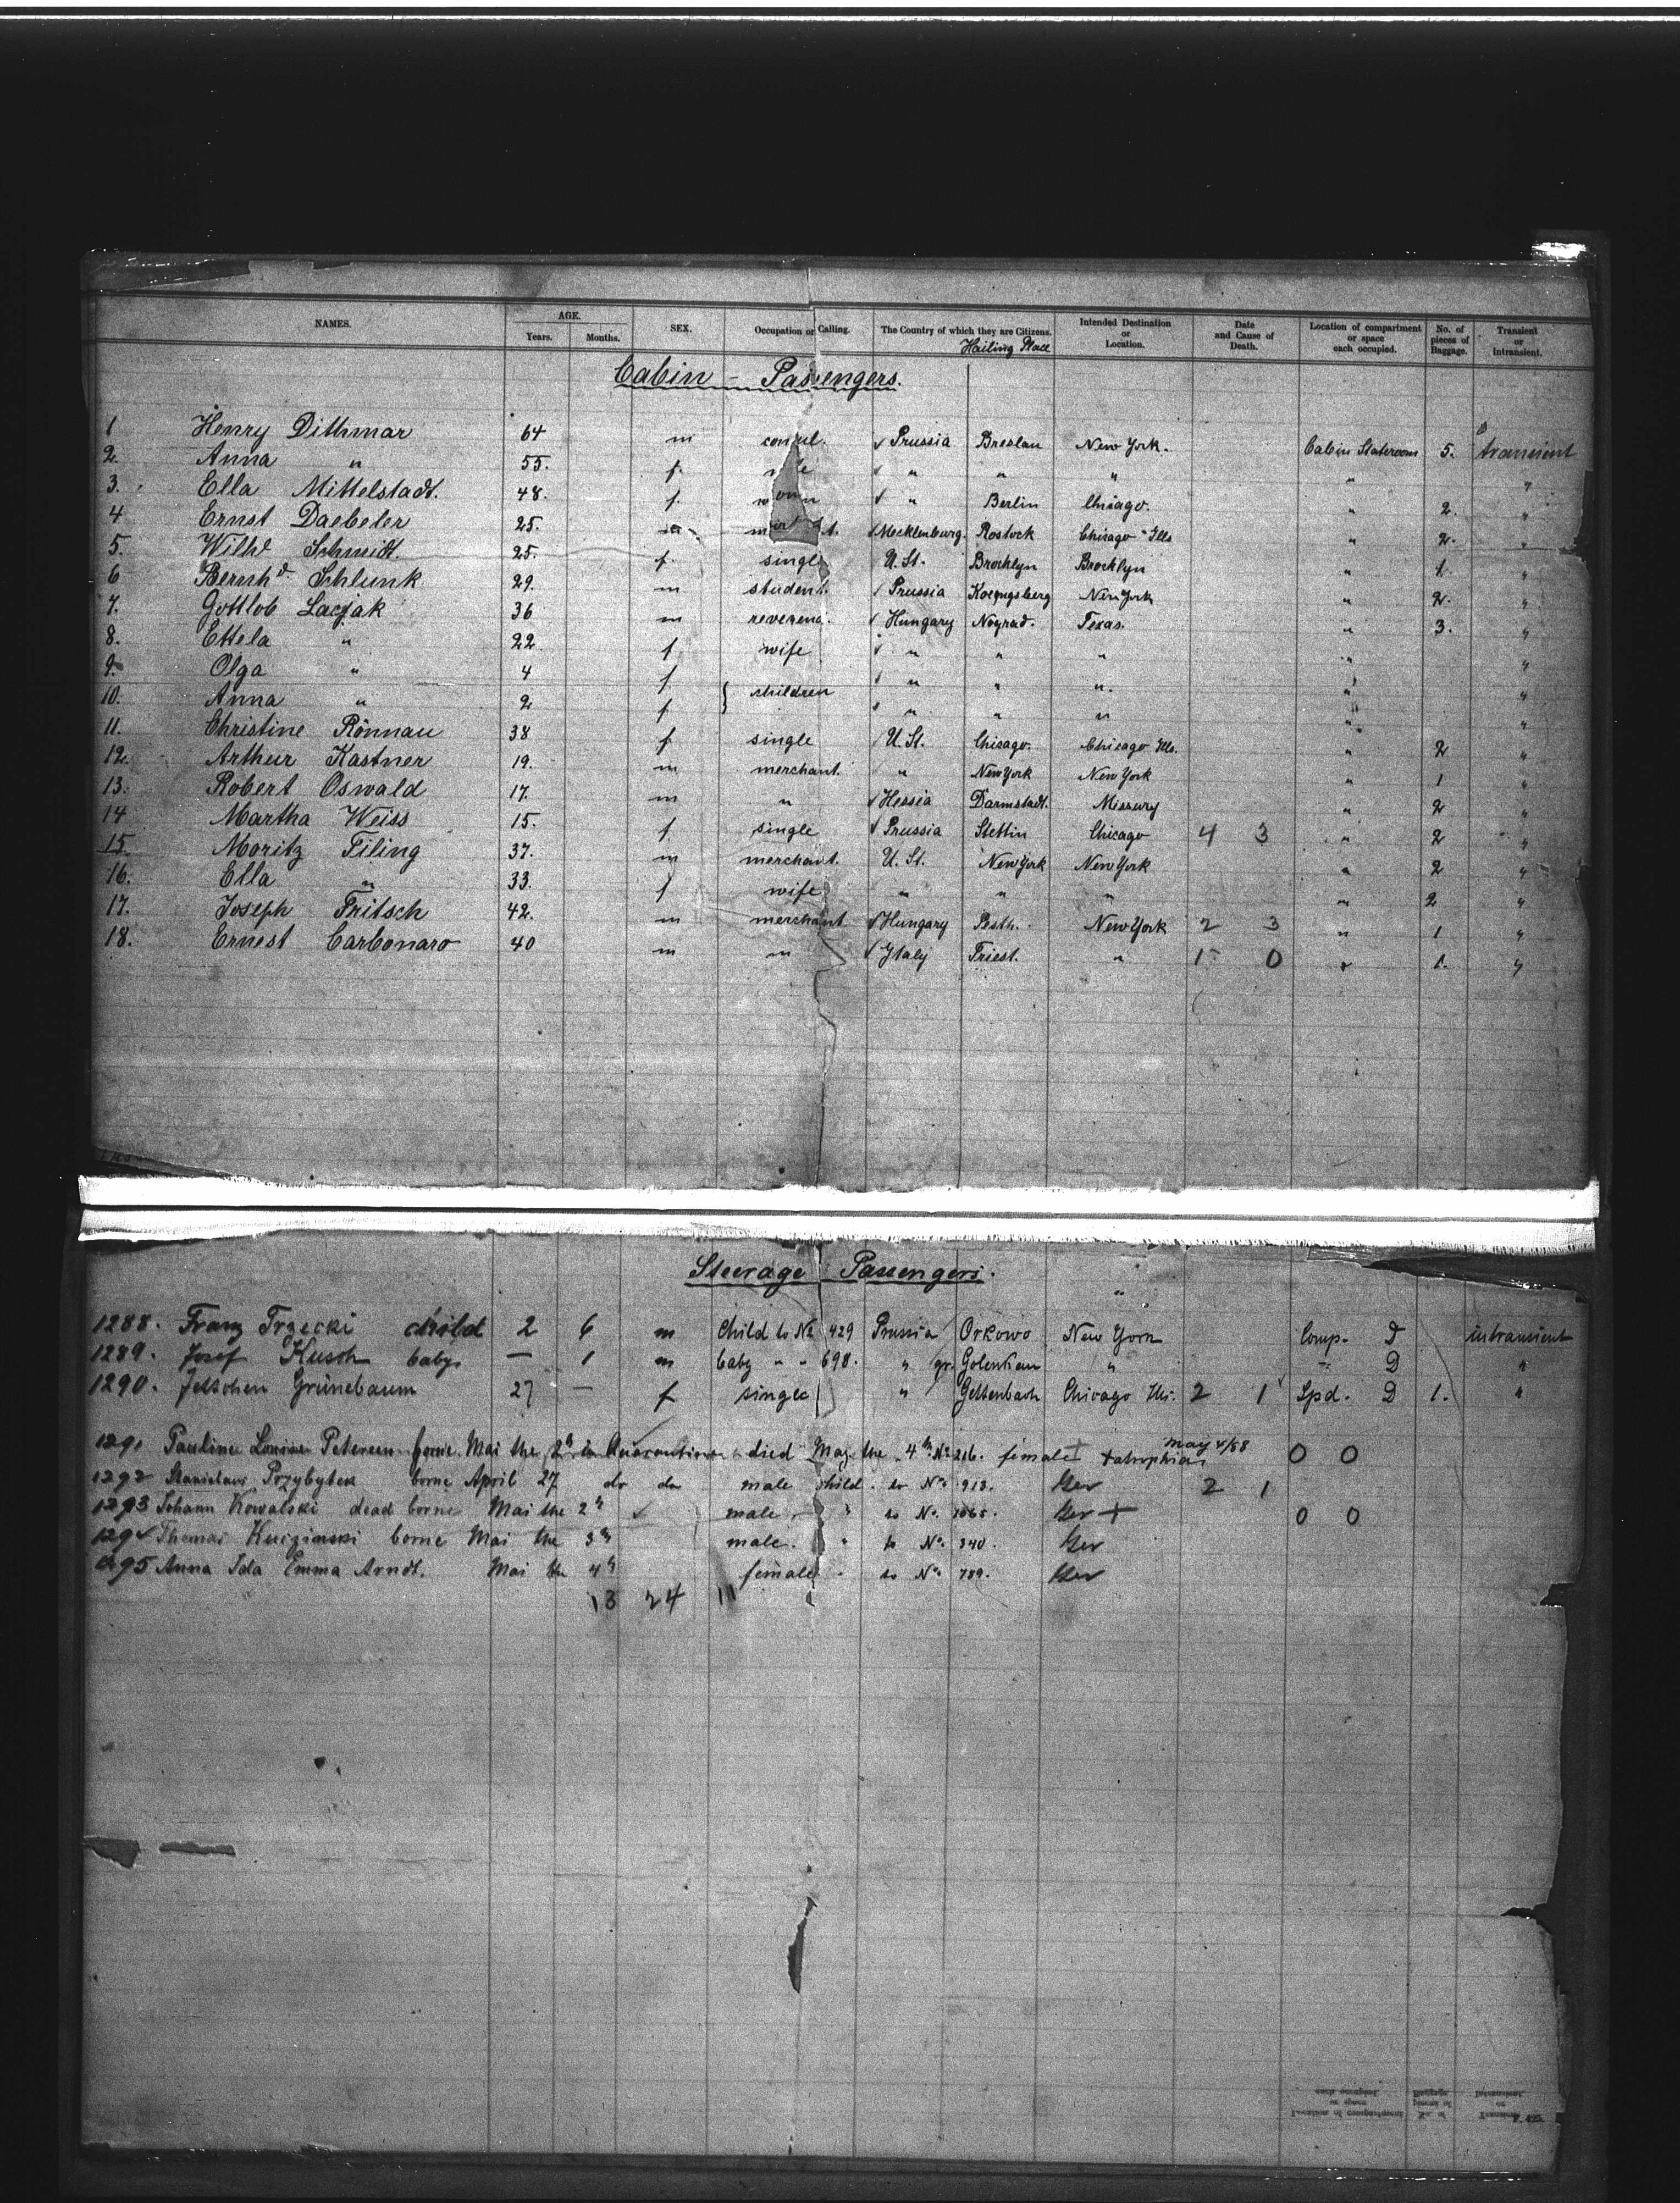 NAMES. AGE. Years. Months. SEX. Occupation or Calling. The Country of which they are Citizens. Hailing Place Intended Destination or Location. Date and Cause of Death. Location of compartment or space each occupied. No. of pieces of Baggage. Transient or Intransient.
Cabin - Passengers.
1 Henry Dithmar 64 m consul. Prussia Breslau New York. Cabin Stateroom 5. transient
2. Anna " 55. f. " " " " "
3. Ella Mittelstadt. 48. f. " Berlin Chicago. " 2. "
4 Ernst Daebeler 25. m Mecklenburg Rostock Chicago Ills " 2. "
5. Wilhe Schmidt. 25. f. single U. St. Brooklyn Brooklyn " 1. "
6 Bernhd. Schlunk 29. m student. Prussia Koenigsberg New York " 2. "
7. Gottlob Lacjak 36 m reverend. Hungary Nograd. Texas. " 3. "
8. Ettela " 22 f wife " " " " "
9. Olga " 4 f } children " " " " "
10. Anna " 2 f " " " " "
11. Christine Rönnau 38 f. single U. St. Chicago. Chicago Ills. " 2 "
12. Arthur Kastner 19. m merchant. " New York New York " 1 "
13. Robert Oswald 17. m " Hessia Darmstadt. Missury " 2 "
14 Martha Weiss 15. f single Prussia Stettin Chicago 4 3 " 2 "
15. Moritz Tiling 37. m merchant. U. St. New York New York " 2 "
16. Ella " 33. f wife " " " " 2 "
17. Joseph Fritsch 42. m merchant Hungary Pesth. New York 2 3 " 1 "
18. Ernest Carbonaro 40 m " Ytaly Triest. " 1 0 " 1. "
Steerage Passengers.
1288. Franz Trzecki child 2 6 m Child to No 429 Prussia Orkowo New York Comp. D intransient
1289. Josef Kusch baby. — 1 m baby " " 698. " gr. " " D "
1290. Jettchen Grünebaum 27 — f single " Gettenbach Chicago Ills. 2 1 Spd. D 1. "
1291 Pauline Louise Petersen borne Mai the 2th in Quarantine died May the 4th No 216. female + atrophia May 4/88 0 0
1292 Stanislaus Przybylek borne April 27 do do male child to No. 913. Ger 2 1
1293 Johann Kowalski dead borne Mai the 2th male " to No. 1065. Ger + 0 0
1294 Thomas borne Mai the 3th male. " to No. 340. Ger
1295 Anna Ida Emma Arndt. Mai the 4th female " to No. 789. Ger
13 24 11